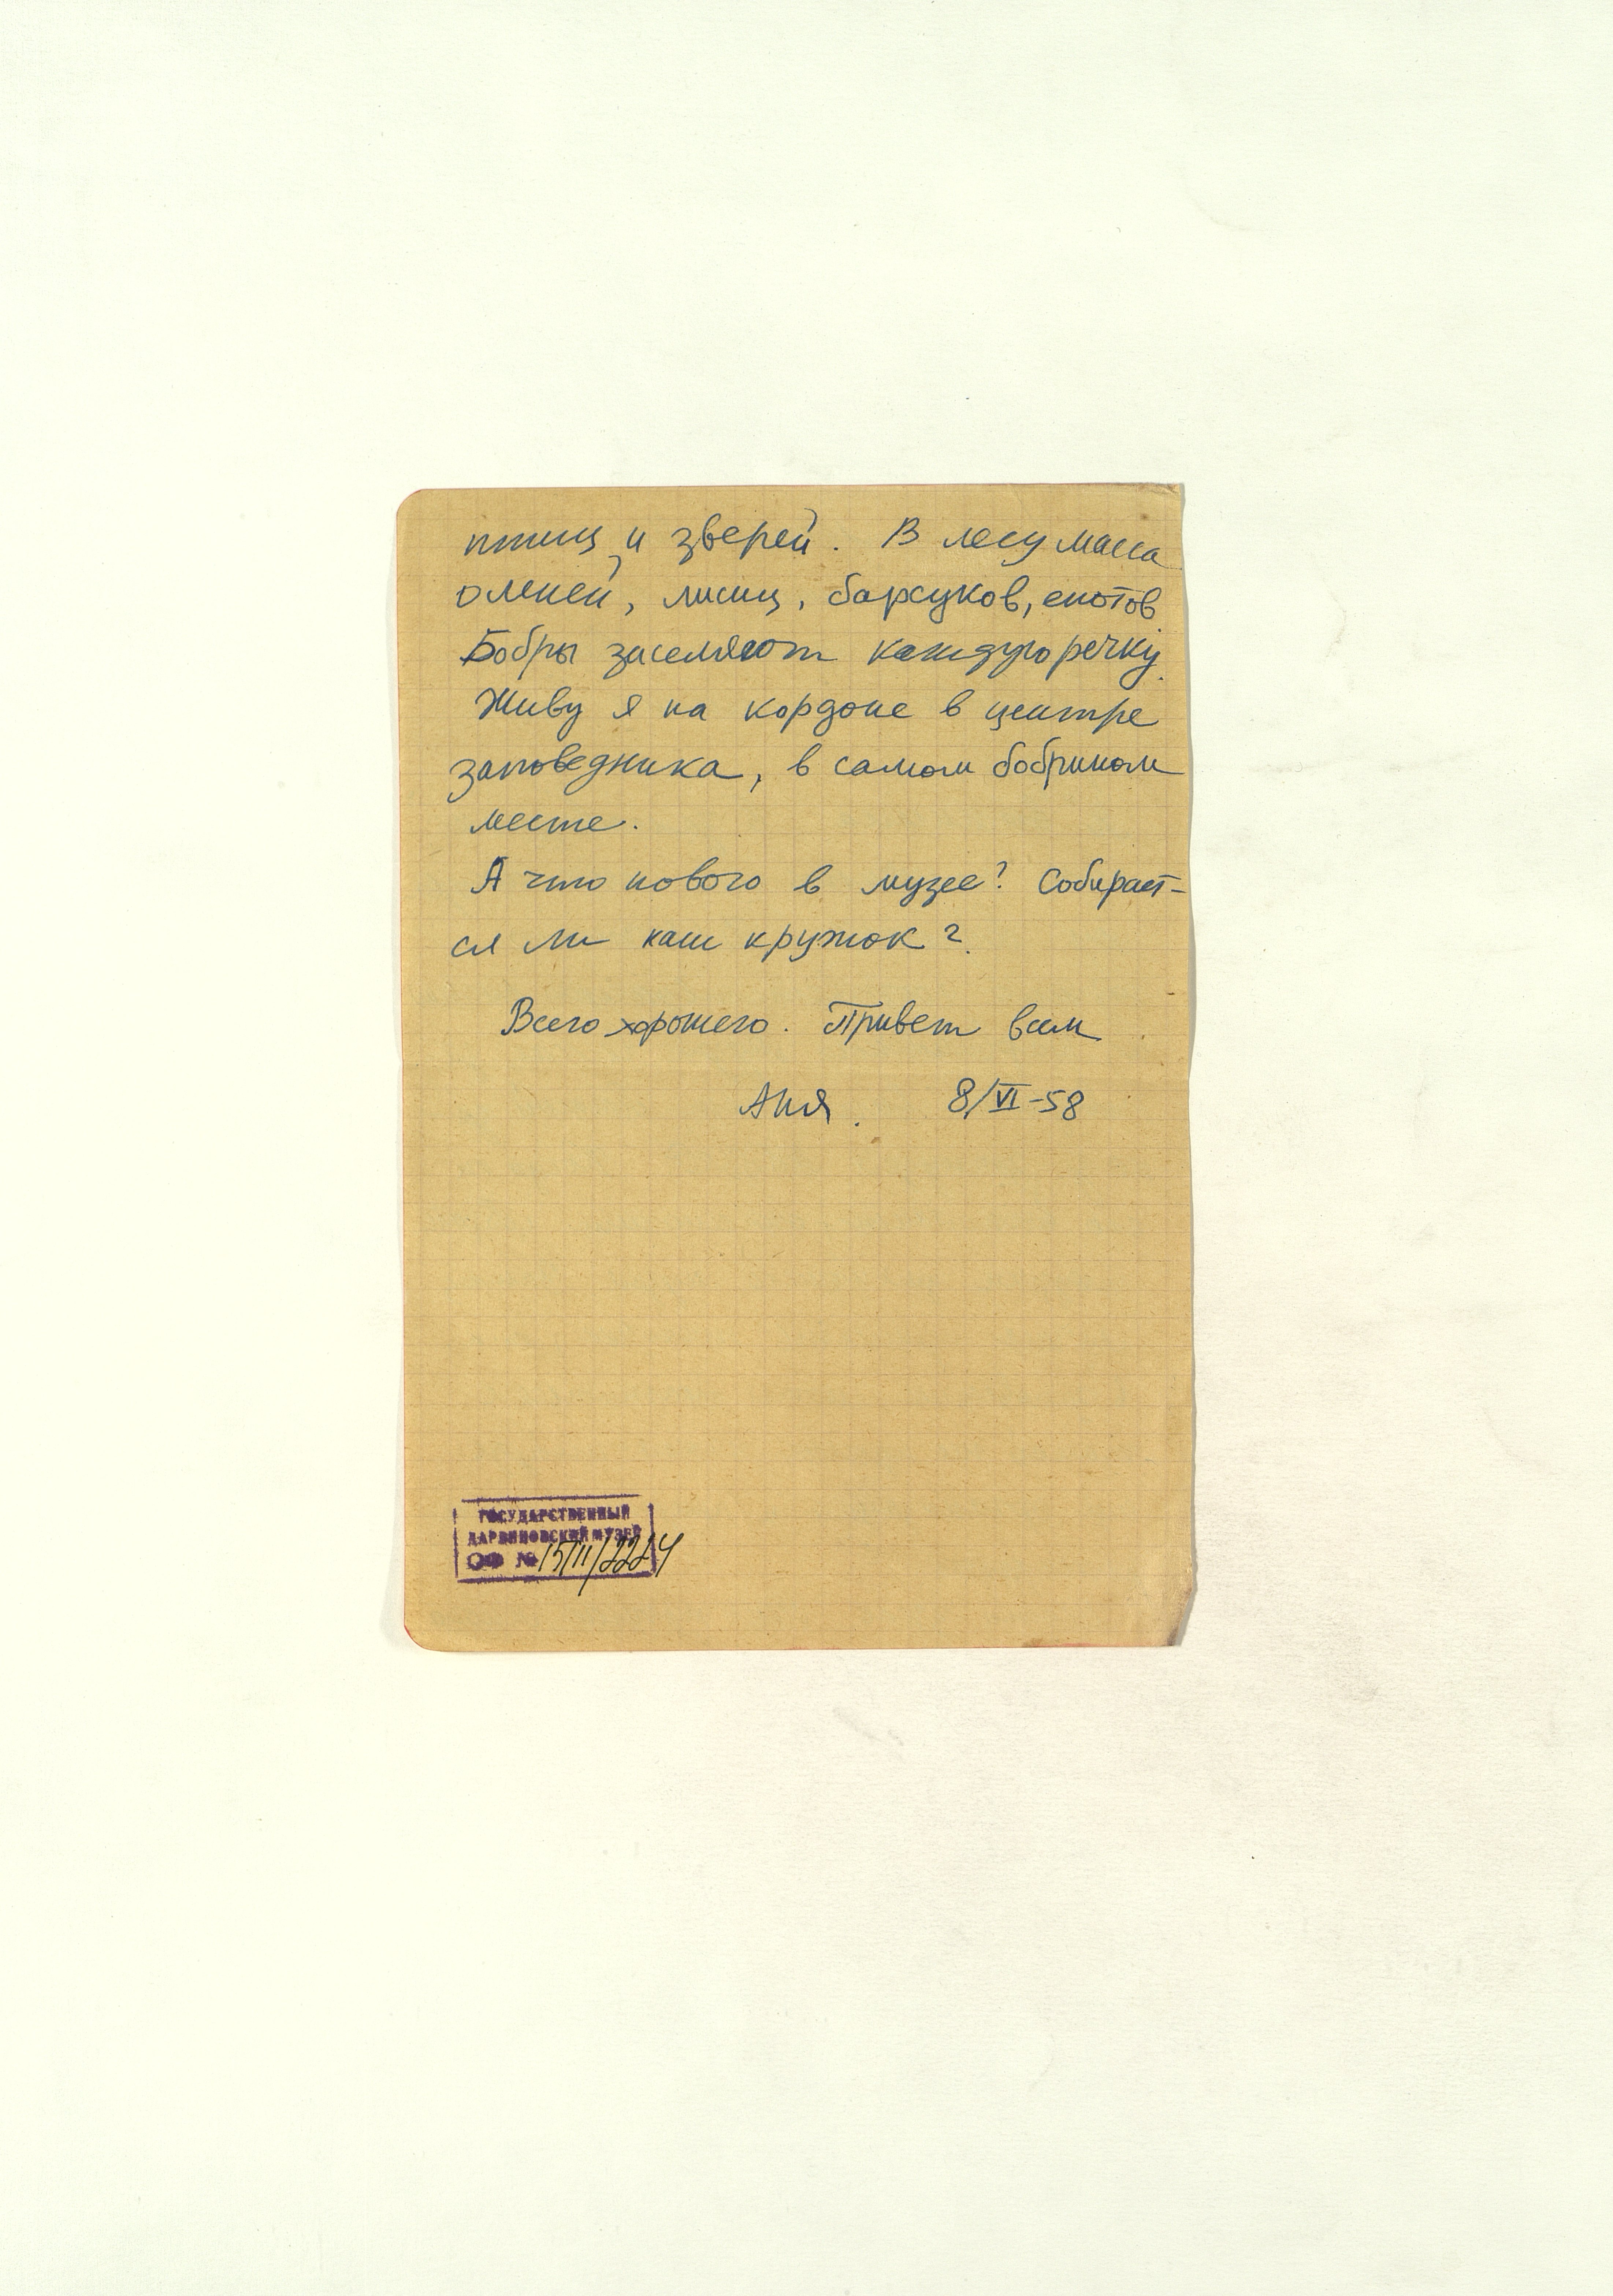 птиц и зверей. В лесу масса
оленей, лисиц, барсуков, енотов
Бобры заселяют каждую речку.
Живу я на кордоне в центре
заповедника, в самом бобрином
месте.
А что нового в музее? Собирает-
ся ли наш кружок?
Всего хорошего. Привет всем
Аня. 8/VI-58
ГОСУДАРСТВЕННЫЙ
ДАРВИНОВСКИЙ МУЗЕЙ
ОФ №